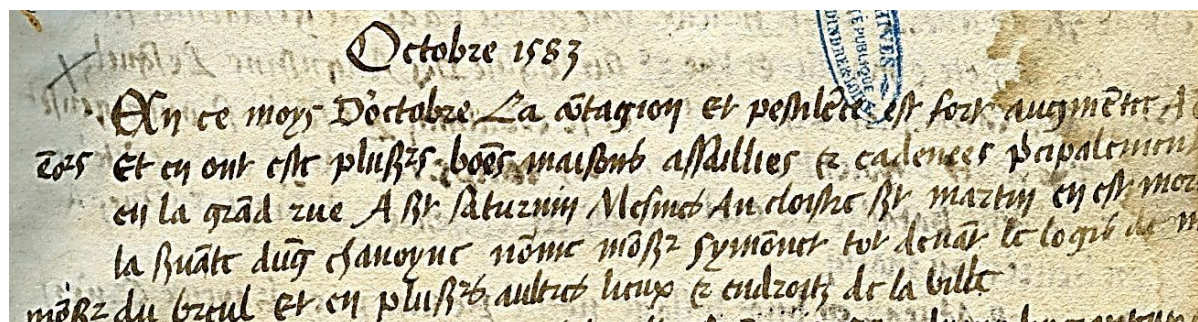 Octobre 1583
En ce moys D'octobre La cōtagion Et pestilēce est fort augmētee A
To's Et en ont este plusrs boēs maisons assaillies & cadences pi̇cipalemen
en la grād rue A St saturnin Mesmes Au cloistre St martin en est mor
la s̄vāte dūg chanoyne nōme mōsr symōnet tot devāt le logis de m
mōsr du breul Et en plusrs aultres lieux & endroitz de la ville